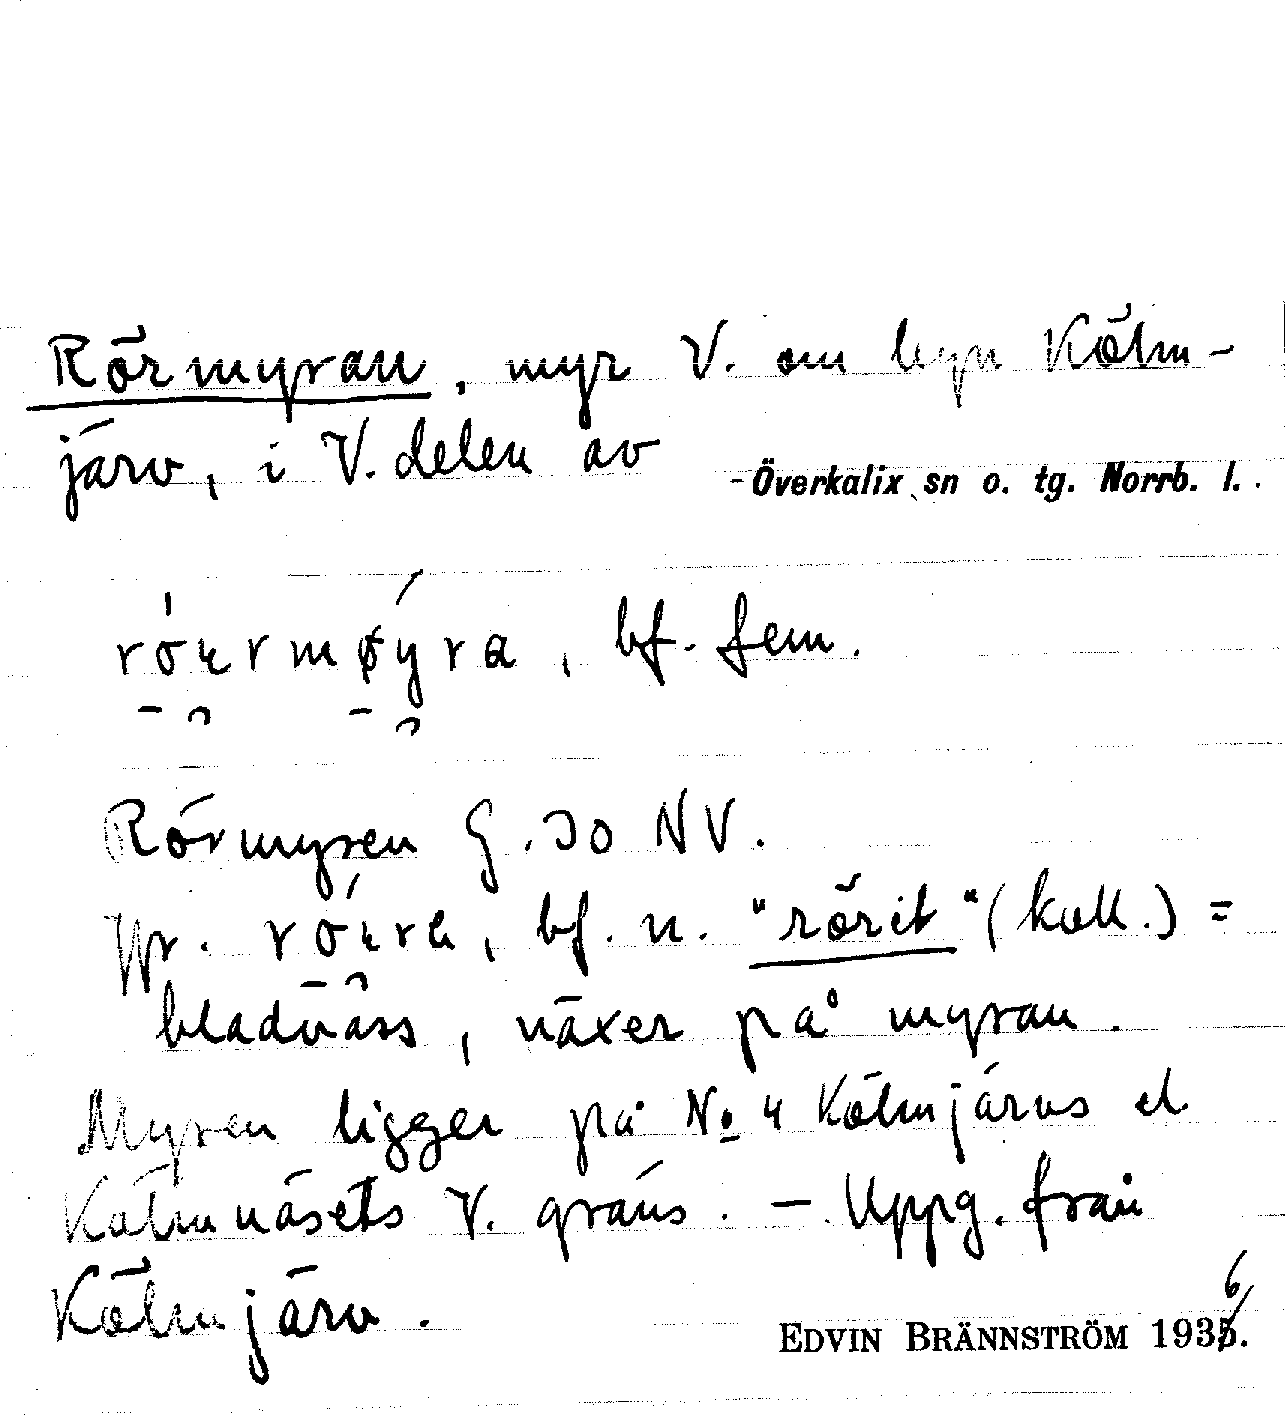 Rörmyran, myr V. om byn Kölm-
järv, i V. delen av Överkalix sn o. tg. Norrb. l.
bf. fem.
Rörmyren G. 30 NV.
Jfr. bf. n. "rörit" (koll.) =
bladvass, växer på myran.
Myren ligger på No 4 Kölmjärvs el
Kölmnäsets V. gräns. — Uppg. från
Kölmjärv.
EDVIN BRÄNNSTRÖM 1936.